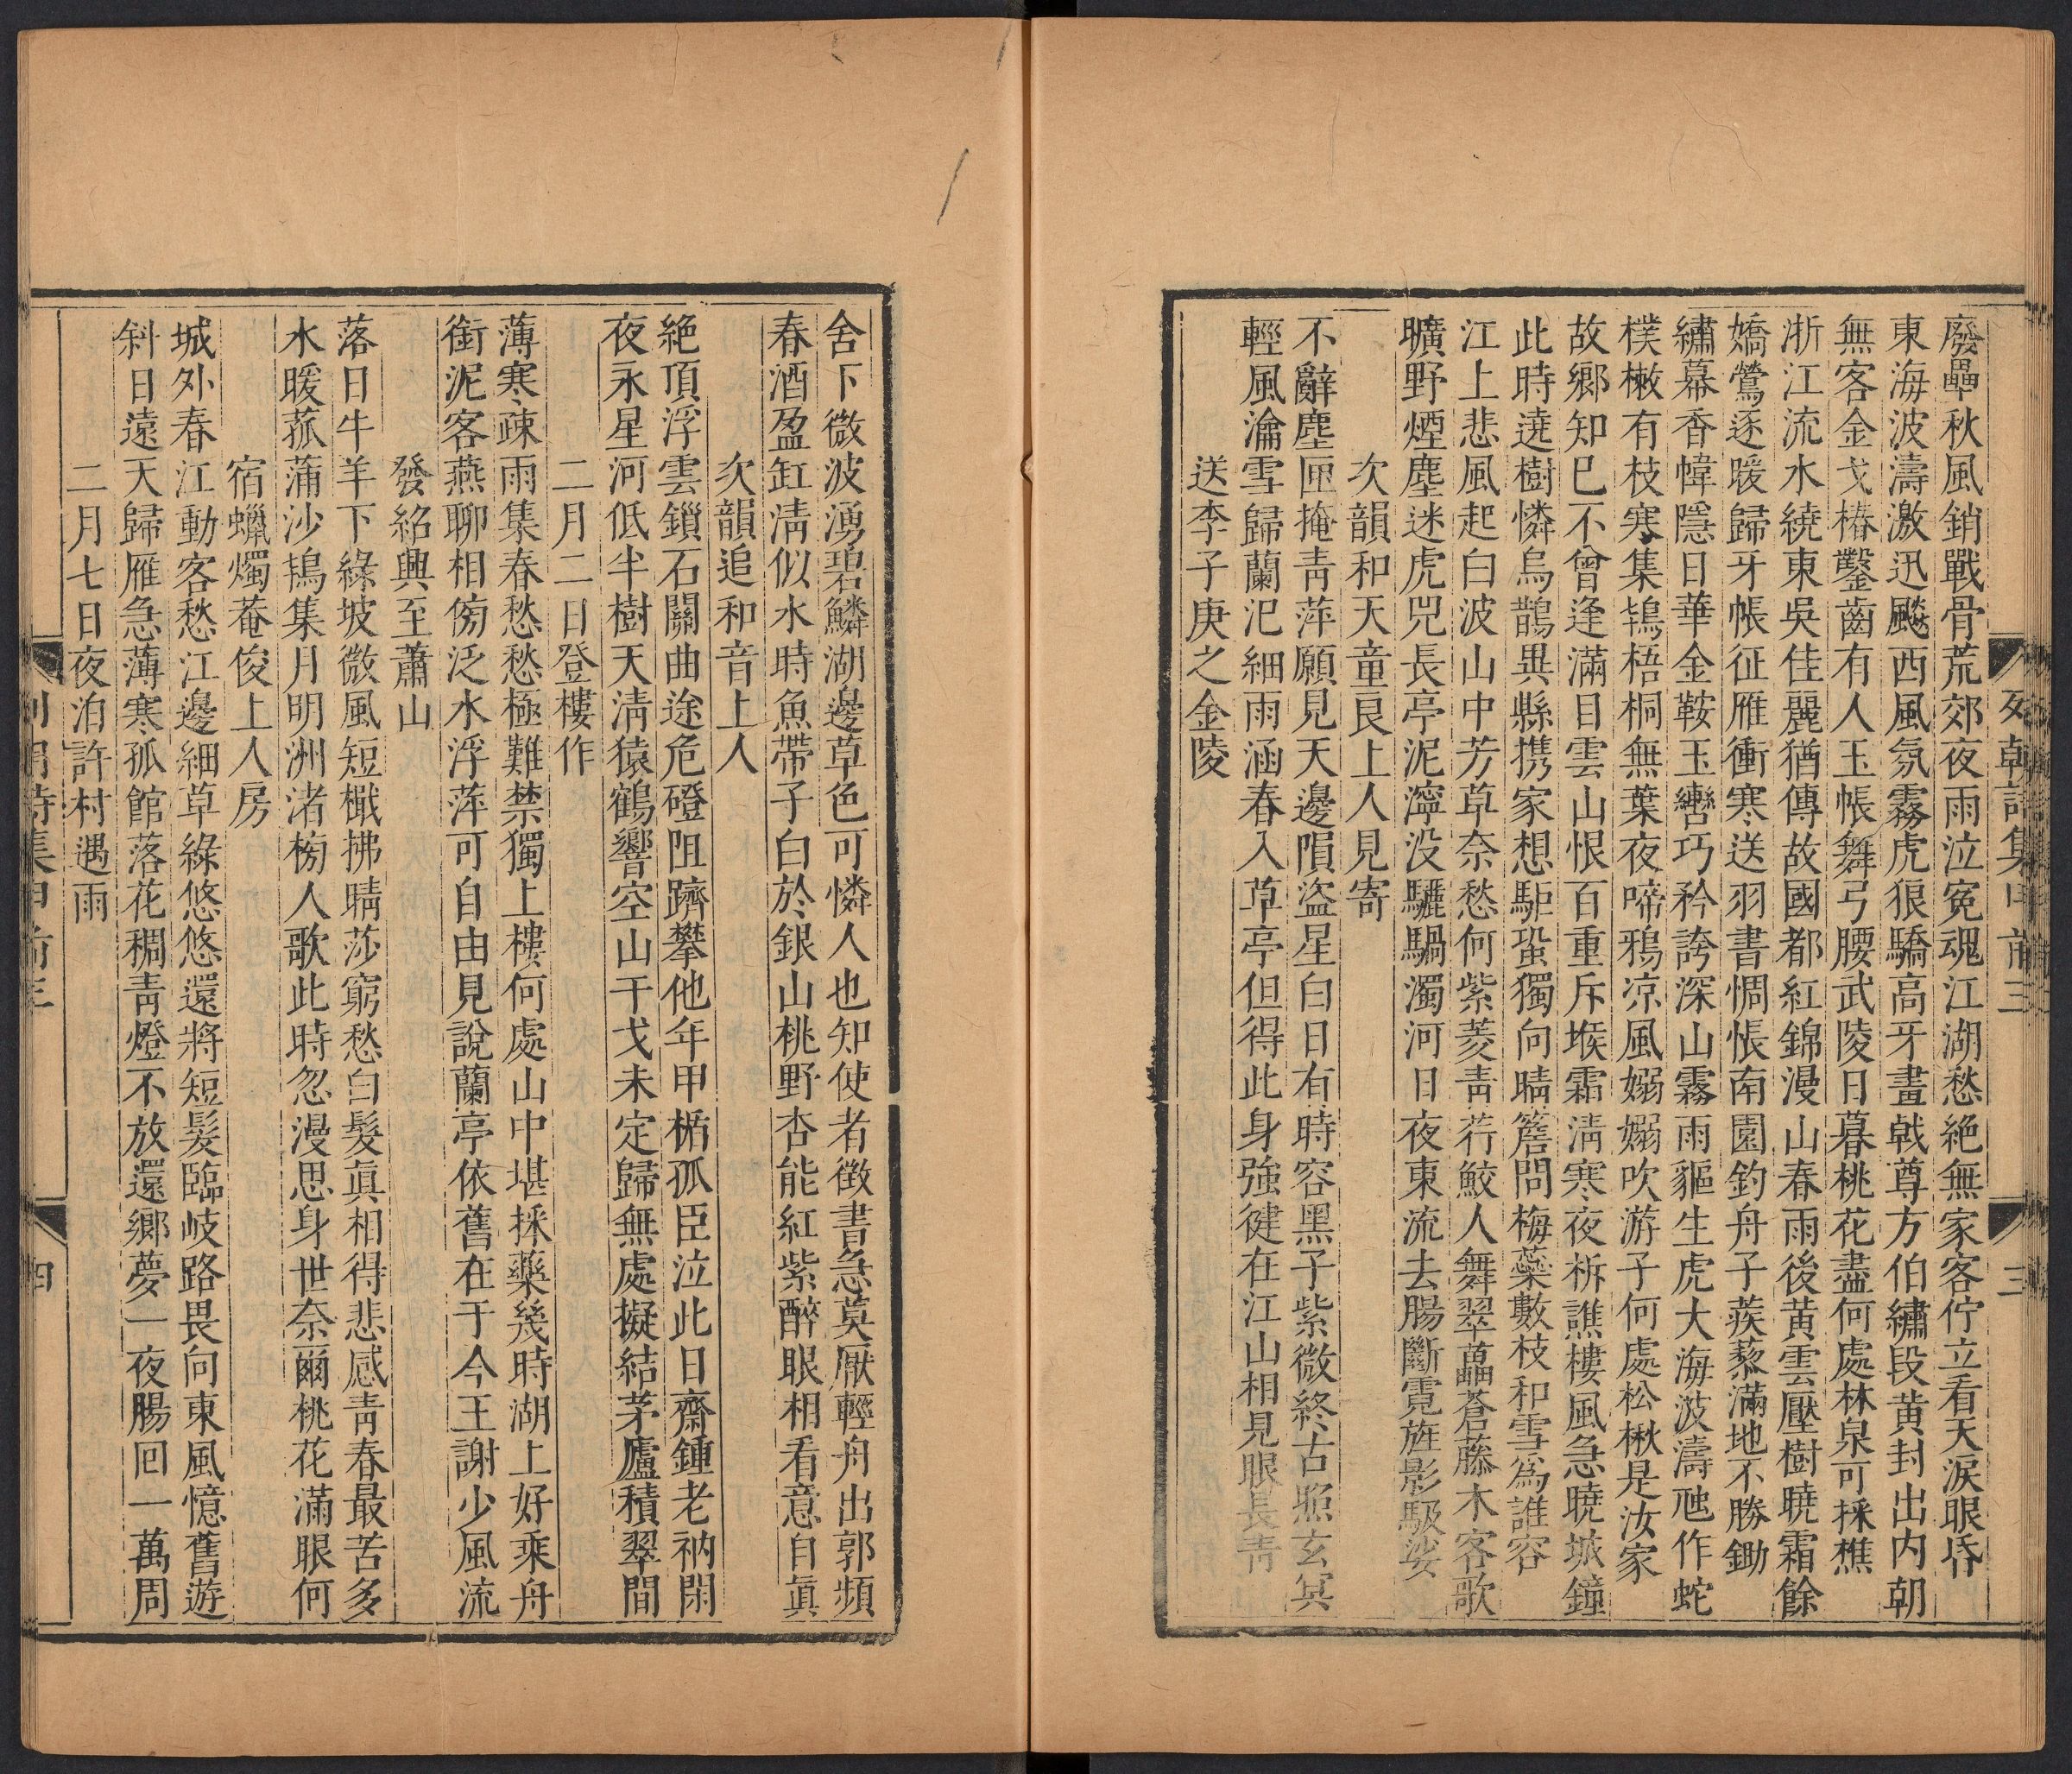 列朝詩集甲前三　三
廢壘秋風銷戰骨荒郊夜雨泣寃魂江湖愁絶無家客佇立看天淚眼昏
東海波濤激迅飈西風氛霧虎狼驕高牙畫戟尊方伯繡段黄封出内朝
無客金戈椿鑿齒有人玉帳舞弓腰武陵日暮桃花盡何處林泉可採樵
浙江流水繞東吳佳麗猶傳故國都紅錦漫山春雨後黄雲壓樹曉霜餘
嬌鶯逐暖歸牙帳征雁衝寒送羽書惆悵南園釣舟子蒺藜滿地不勝鋤
繡幕香幃隱日華金鞍玉轡巧矜誇深山霧雨貙生虎大海波濤虺作蛇
樸樕有枝寒集鴇梧桐無葉夜啼鴉凉風嫋嫋吹游子何處松楸是汝家
故鄉知巳不曾逢滿目雲山恨百重斥堠霜淸寒夜柝譙樓風急曉城鐘
此時遶樹憐烏鵲異縣携家想駏蛩獨向晴簷問梅蘂數枝和雪爲誰容
江上悲風起白波山中芳草奈愁何紫菱靑荇鮫人舞翠藟蒼藤木客歌
曠野煙塵迷虎兕長亭泥濘没驪騧濁河日夜東流去腸斷霓旌影馺娑
次韻和天童良上人見寄
不辭塵匣掩靑萍願見天邊隕盜星白日有時容黑子紫微終古照玄冥
輕風瀹雪歸蘭汜細雨涵春入草亭但得此身強健在江山相見眼長靑
送李子庚之金陵
舍下微波湧碧鱗湖邊草色可憐人也知使者徵書急莫厭輕舟出郭頻
春酒盈缸淸似水時魚帶子白於銀山桃野杏能紅紫醉眼相看意自眞
次韻追和音上人
絶頂浮雲鎖石關曲途危磴阻躋攀他年甲楯孤臣泣此日齋鍾老衲閑
夜永星河低半樹天淸猿鶴響空山干戈未定歸無處擬結茅廬積翠間
二月二日登樓作
薄寒疎雨集春愁愁極難禁獨上樓何處山中堪採藥幾時湖上好乘舟
銜泥客燕聊相傍泛水浮萍可自由見說蘭亭依舊在于今王謝少風流
發紹興至蕭山
落日牛羊下綠坡微風短檝拂晴莎窮愁白髮眞相得悲感靑春最苦多
水暖菰蒲沙鴇集月明洲渚榜人歌此時忽漫思身世奈爾桃花滿眼何
宿蠟燭菴俊上人房
城外春江動客愁江邊細草綠悠悠還將短髮臨岐路畏向東風憶舊遊
斜日遠天歸雁急薄寒孤館落花稠靑燈不放還鄉夢一夜腸回一萬周
二月七日夜泊許村遇雨
列朝詩集甲前三　四